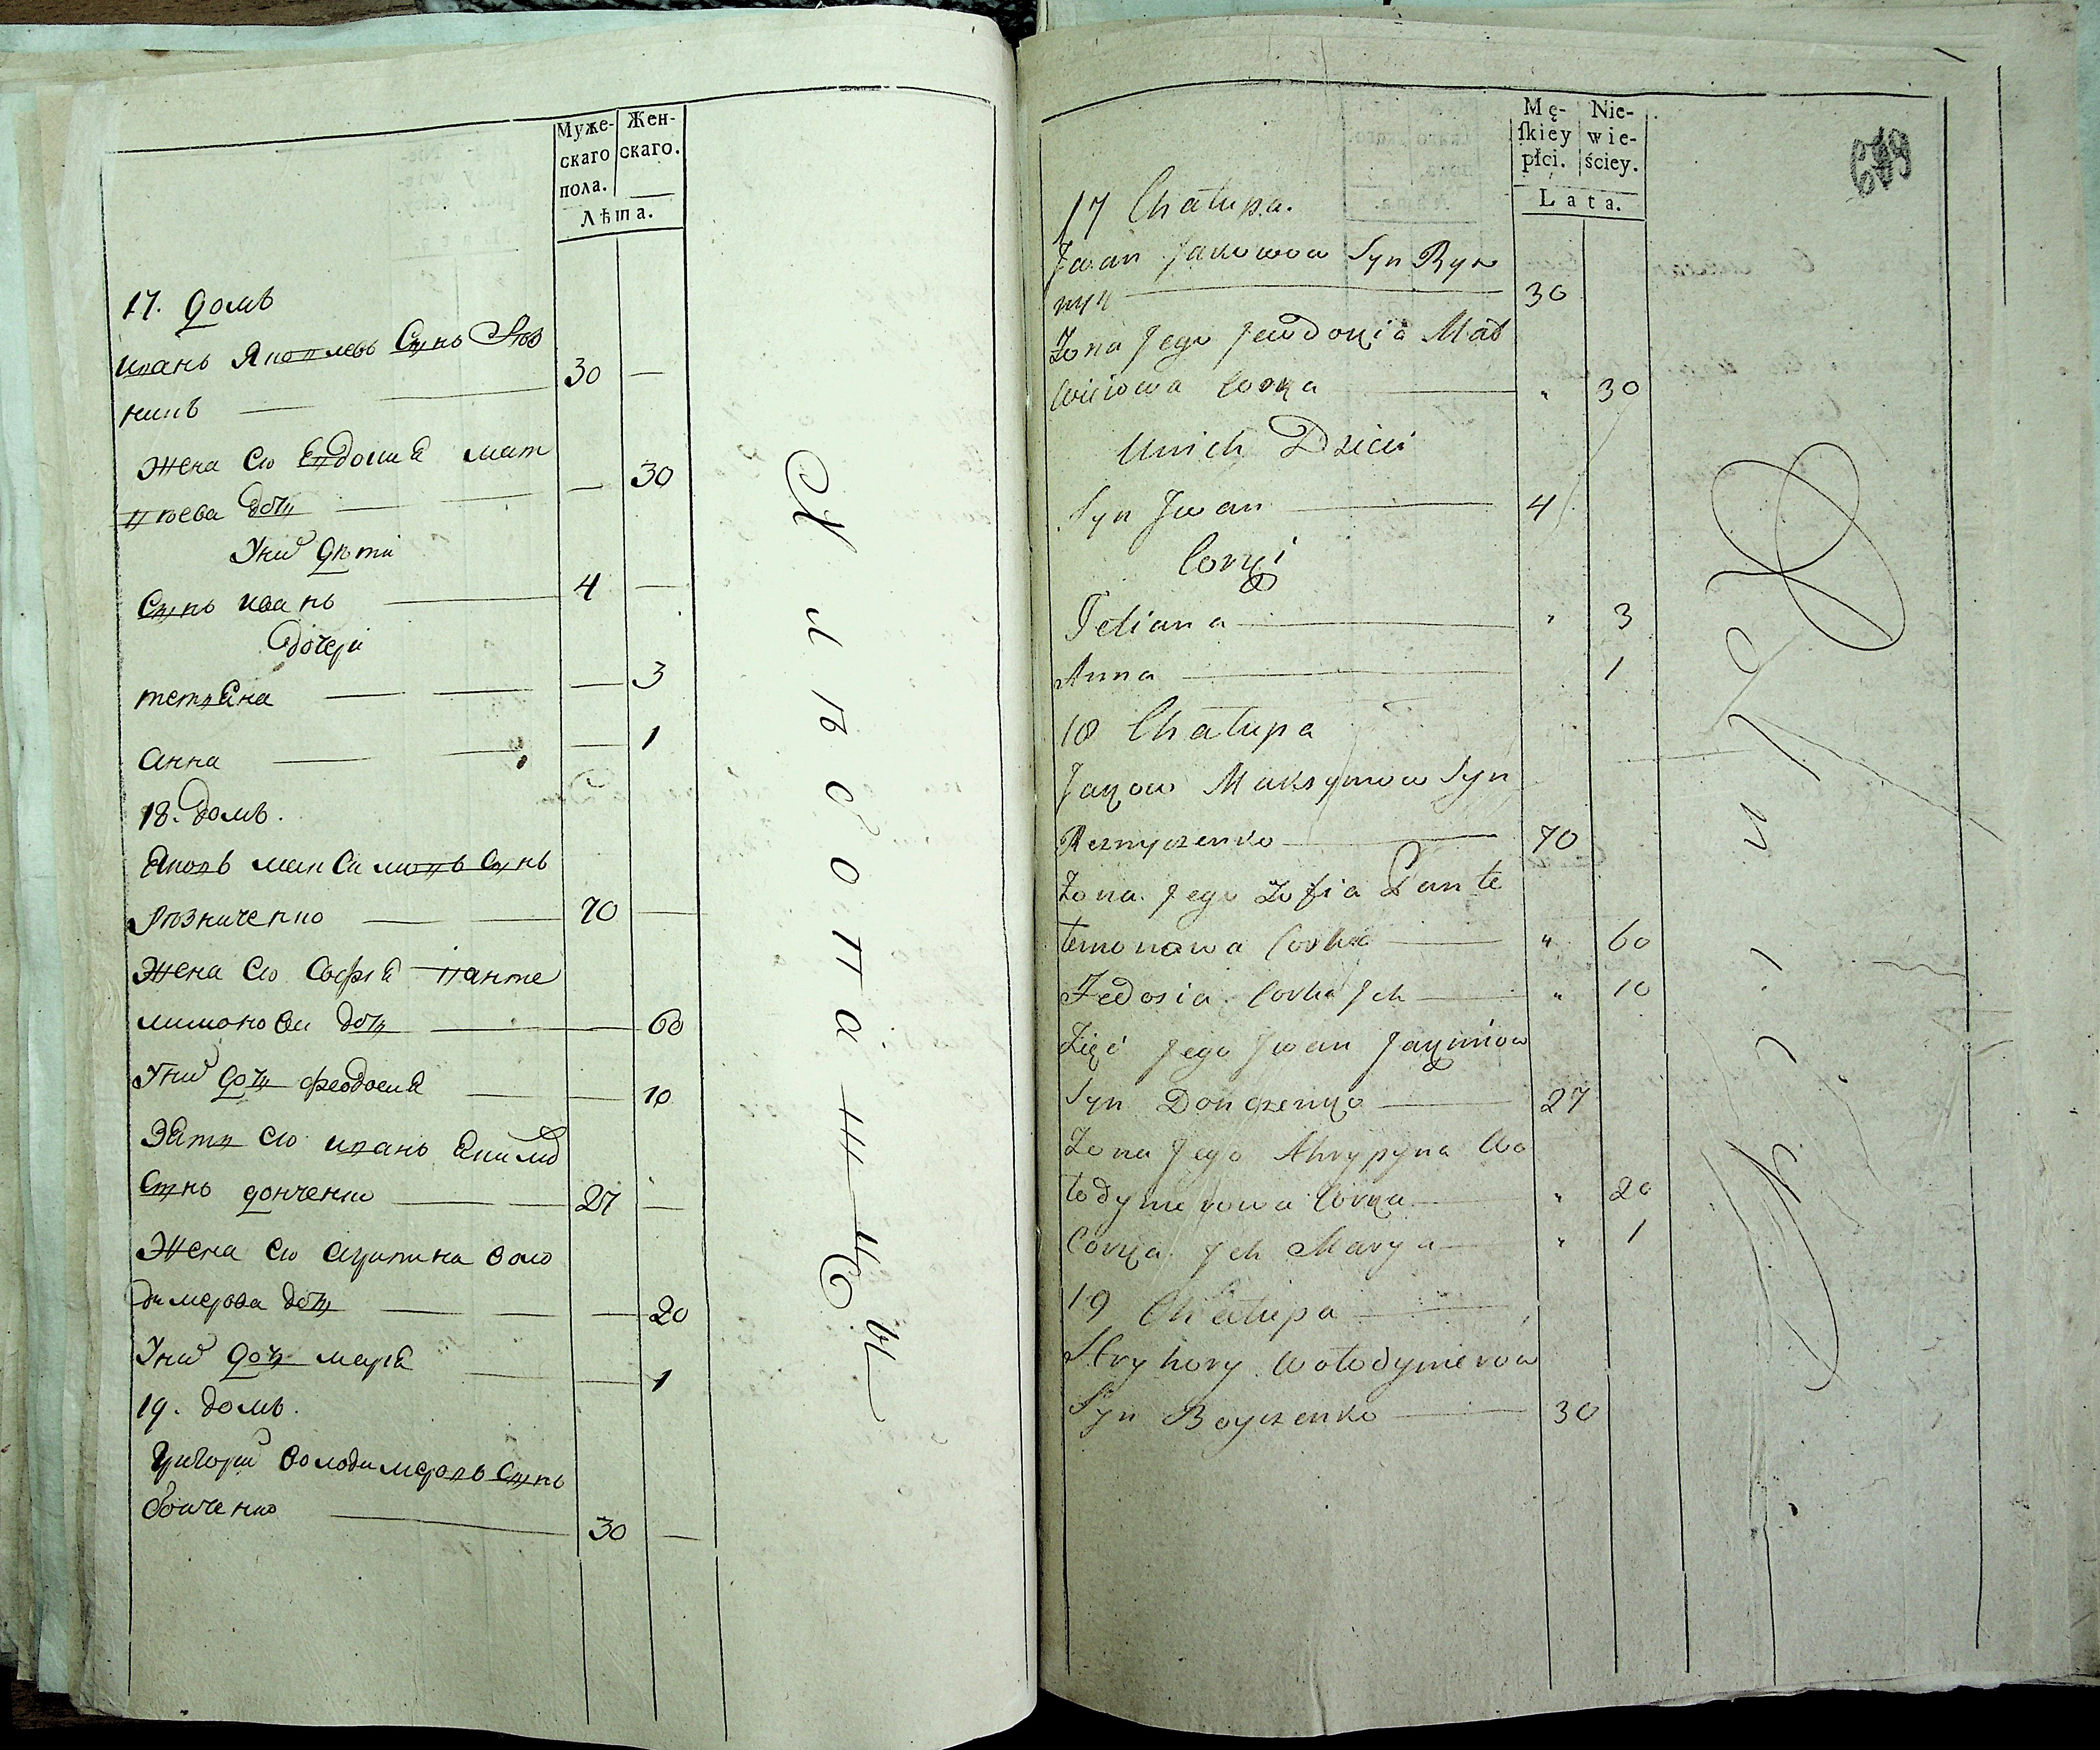 Муже-
скаго
пола.
Жен-
скаго.
Лѣта.
17. домъ
иванъ Яковлевъ Сынъ Рѣз
никъ 30 —
жена его Евдокиа мат
вѣева дочь — 30
У них дѣти
Сынъ иванъ 4 —
дочери
тетяна — 3
анна — 1
18. домъ.
Яковъ максимовъ Сынъ
Рѣзниченко 70 —
жена его Софиа панте
лимонова дочь — 60
У них дочь феодосиа — 10
Зять его иванъ
Сынъ донченко 27 —
Жена его воло
димерова дочь — 20
У них дочь мариа — 1
19. домъ.
Григорий володимеровъ Сынъ
бойченко 30 —
Mę-
ſkiey
płci.
Nie-
wie-
ściey.
Lata.
17 Chałupa.
Jwan Jakowow Syn Ryz
nyk 30
Żona Jego Jewdokia Mat
wiiowa Corka " 30
U nich Dzieci
Syn Jwan 4
Corki
Tetiana " 3
Anna 1
18 Chałupa
Jakow Maksymow Syn
Reznyczenko 70
Żona Jego Zofia Pante
lemonowa Corka " 60
Fedosia Corka Jch " 10
Zięć Jego Jwan Jakimow
Syn Donczenko 27
Żona Jego Ahrypyna Wo
łodymerowa Corka " 20
Corka Jch Marya " 1
19 Chałupa
Hryhory Wołodymerow
Syn Boyczenko 30